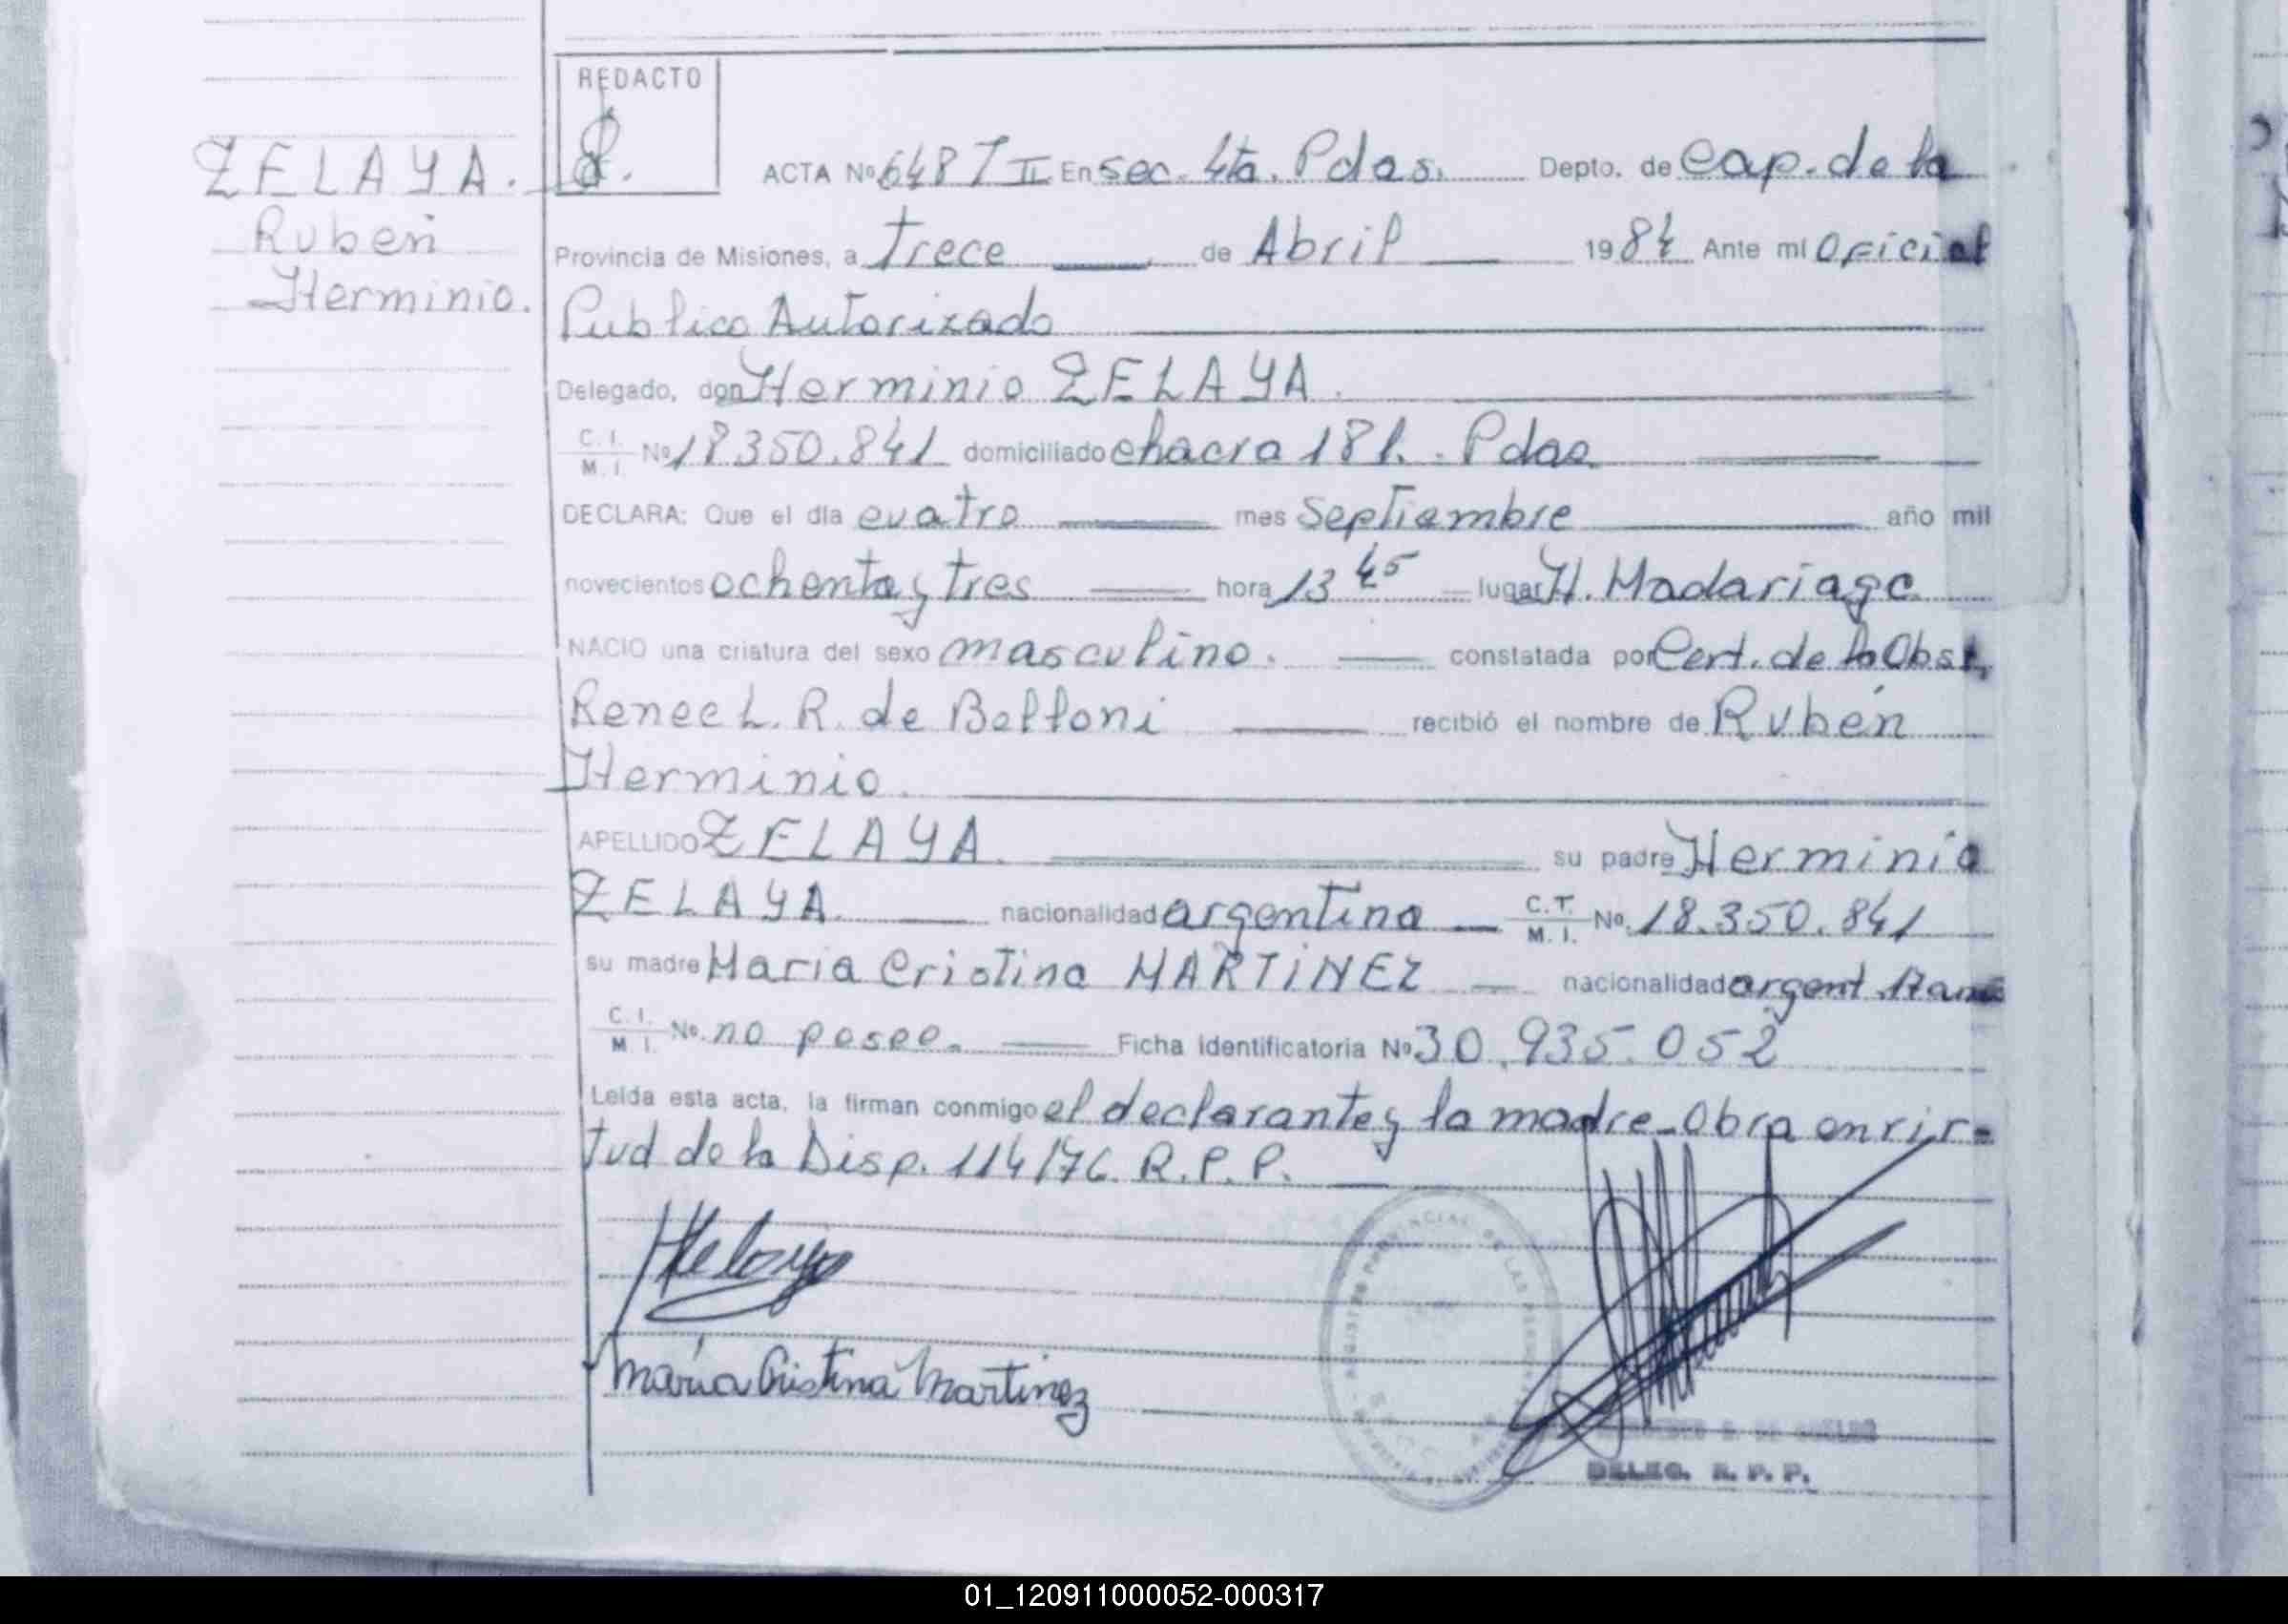 REDACTO
ZELAYA.
Ruben
Herminio.
ACTA Nº 6487 II En sec. 4ta. Pdas. Depto. de Cap. de la
Provincia de Misiones, a trece de Abril 1984 Ante mí Oficial
Publico Autorizado
Delegado, don Herminio ZELAYA.
C. I. M. I. Nº 18.350.841 domiciliado chacra 181. Pdas
DECLARA: Que el día cuatro mes Septiembre año mil
novecientos ochenta y tres hora 13 45 lugar H. Madariaga
NACIO una criatura del sexo masculino. constatada por Cert. de la Obst.
Renee L. R. de Belloni recibió el nombre de Rubén
Herminio.
APELLIDO ZELAYA. su padre Herminio
ZELAYA. nacionalidad argentina C. T. M. I. Nº 18.350.841
su madre Maria Cristina MARTINEZ nacionalidad argent.
C. I. M. I. Nº no posee. Ficha identificatoria Nº 30.935.052
Leída esta acta, la firman conmigo el declarante y la madre-Obra en vir-
tud de la Disp. 114/76. R.P.P.
HZelaya
María Cristina Martinez
DELEG. R. P. P.
01_120911000052-000317